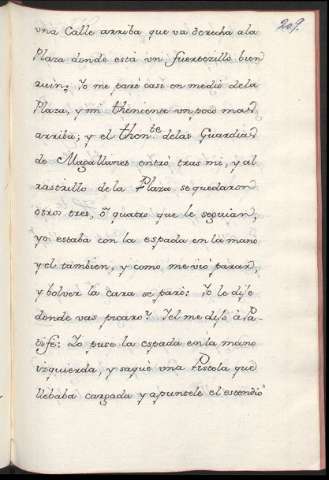 209.
una Calle arriba que va derecha a la
Plaza donde está un fuerbezillo bien
ruin; Yo me paré casi en medio de la
Plaza, y mi thêniente un poco mas
arriba; y el thente. de las Guardias
de Magallanes entró tras mi, y al
rastrillo de la Plaza se quedaron
otros tres, ô quatro que le seguian,
yo estaba con la espada en la mano
y el tambien, y como me vió parar,
y bolver la cara se paró: Yo le dije
donde vas picaro? Y el me dijo à Pa
Yo puse la espada en la mano
izquierda, y saqué una Pistola que
llebaba cargada y apuntele el escondió